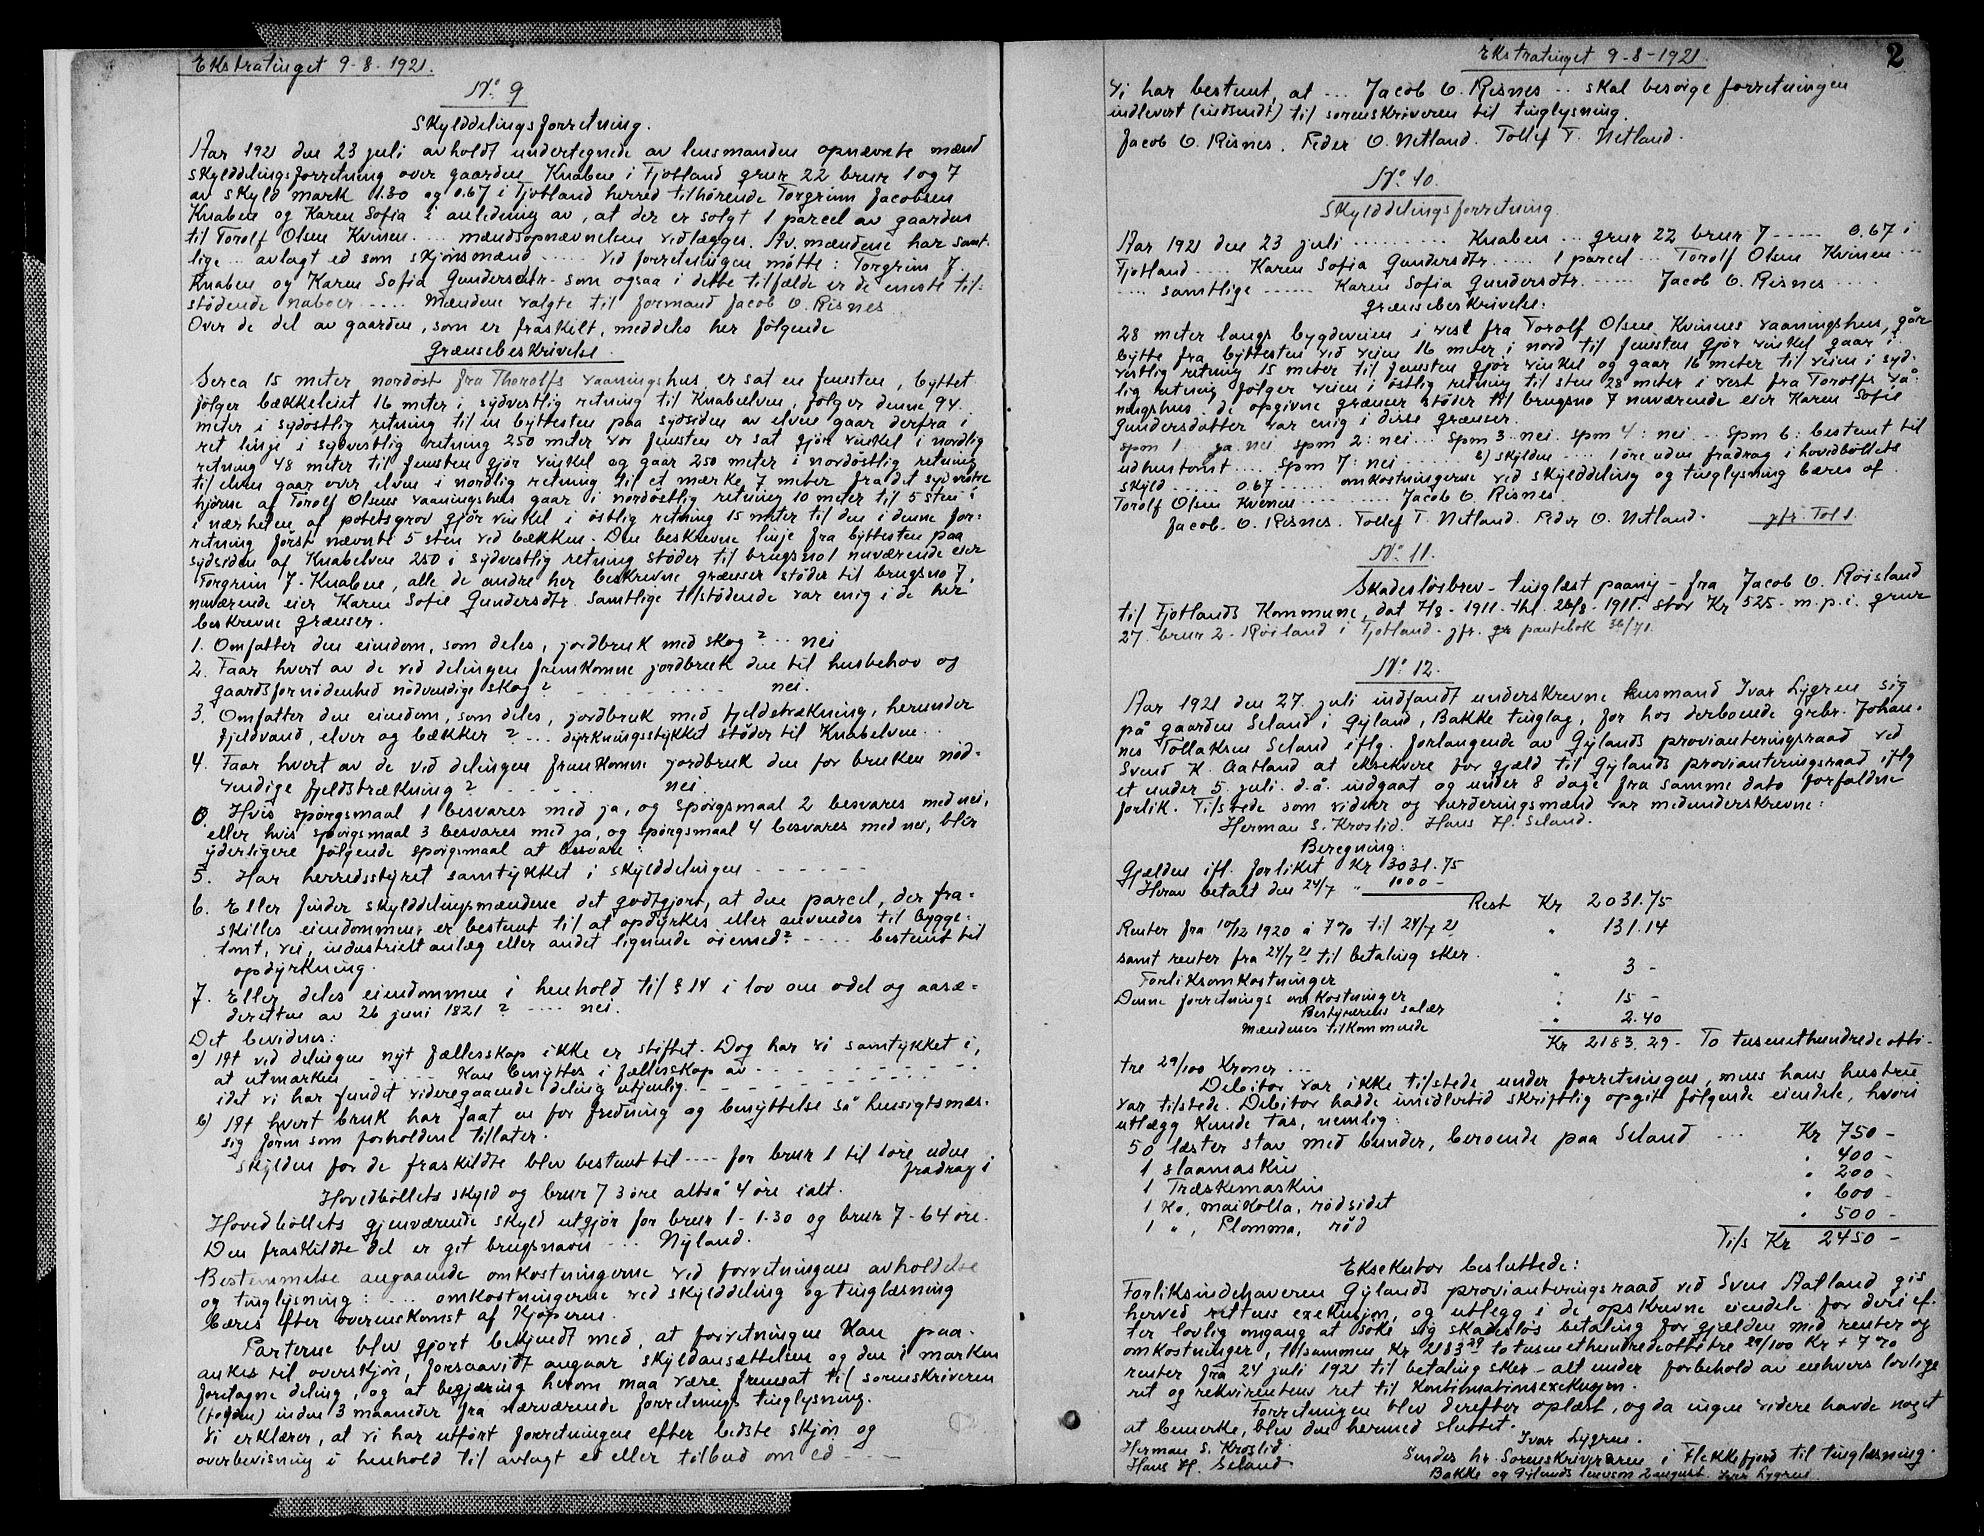 Ekstratinget 9-8-1921.
No. 9
Skylddelingsforretning.
Aar 1921 den 23 juli avholdt undertegnede av lensmanden opnævnte mænd
skylddelingsforretning over gaarden Knaben i Fjotland grnr 22 brnr 1 og 7
av skyld mark 1.30 og 0.67 i Fjotland herred tilhørende Torgrim Jacobsen
Knaben og Karen Sofia i anledning av, at der er solgt 1 parcel av gaarden
til Torolf Olsen Kvinen .... mændsopnævnelsen vedlægges. Av mændene har samt-
lige ... avlagt ed som skjønsmænd ..... Ved forretningen møtte: Torgrim J.
Knaben og Karen Sofia Gundersdtr. som ogsaa i dette tilfælde er de eneste til-
stødende naboer ..... Mændene valgte til formand Jacob O. Risnes
Over de del av gaarden, som er fraskilt, meddeles her følgende
Grænsebeskrivelse.
Serca 15 meter nordøst fra Thorolfs vaaningshus er sat en jensten, byttet
følger bækkeleiet 16 meter i sydvestlig retning til Knabeelven, følger denne 94
meter i sydostlig retning til en byttesten paa sydsiden av elven gaar derfra i
ret linje i sydvestlig retning 250 meter vor jensten er sat gjör vinkel i nordlig
retning 48 meter til jensten gjör vinkel og gaar 250 meter i nordöstlig retning
til elven gaar over elven i nordlig retning til et mærke 7 meter fra det sydvestre
hjörne af Torolf Olsens vaaningshus gaar i nordöstlig retning 10 meter til 5 sten i
i nærheden af potetsgrov gjör vinkel i östlig retning 15 meter til den i denne for-
retning först nævnte 5 sten ved bækken. Den beskrevne linje fra byttesten paa
sydsiden af Knabelven 250 i sydvestlig retning stöder til brugsno 1 nuværende eier
Torgrim J. Knaben, alle de andre her beskrevne grænser stöder til brugsno 7,
nuværende eier Karen Sofie Gundersdtr. Samtlige tilstödende var enig i de her
beskrevne grænser.
1. Omfatter den eiendom, som deles, jordbruk med skog? ... nei
2. Faar hvert av de ved delingen fremkomne jordbruk den til husbehov og
gaardsfornödenhed nödvendige skog? - - - - - - - - nei.
3. Omfatter den eiendom, som deles, jordbruk med fjeldstrækning, herunder
fjeldvand, elver og bækker? ... dyrkningsstykket støder til Knabelven...
4. Faar hvert av de ved delingen fremkomne jordbruk den for bruken nød-
vendige fjeldstrækning? - - - - nei
0. Hvis spørgsmaal 1 besvares med ja, og spørgsmaal 2 besvares med nei,
eller hvis spørgsmaal 3 besvares med ja, og spørgsmaal 4 besvares med nei, blir
yderligere følgende spørgsmaal at besvare:
5. Har herredsstyret samtykket i skylddelingen - - - - - -
6. Eller finder skylddelingsmændene det godtgjort, at den parcel, der fra-
skilles eiendommen, er bestemt til at opdyrkes eller anvendes til bygge-
tomt, vei, industrielt anlæg eller andet lignende øiemed? .... bestemt til
opdyrkning.
7. Eller deles eiendommen i henhold til § 14 i lov om odel og aasæ-
deretten av 26 juni 1821? .... nei.
Det bevidnes:
a) At ved delingen nyt fællesskap ikke er stiftet. Dog har vi samtykket i,
at utmarken - - - - - kan benyttes i fællesskap av - - - - - - - -
idet vi har fundet videregaaende deling utjenlig. - - - - - - - - -
b) At hvert bruk har faat en for fredning og benyttelse så hensigtsmæs-
sig form som forholdene tillater.
Skylden for de fraskildte blev bestemt til ---- for brnr 1 til 1 øre uden
fradrag i
Hovedbøllets skyld og brnr 7 3 øre altså 4 øre ialt.
Hovedbøllets gjenværende skyld utgjør for brnr 1 - 1.30 og brnr 7 - 64 øre.
Den fraskildte del er git brugsnavn ... Nyland.
Bestemmelse angaaende omkostningerne ved forretningens avholdelse
og tinglysning: .... omkostningerne ved skylddeling og tinglæsning
bæres efter overenskomst af kjøperen.
Parterne blev gjort bekjendt med, at forretningen kan paa-
ankes til overskjøn, forsaavidt angaar skyldansættelsen og den i marken
foretagne deling, og at begjæring herom maa være fremsat til sorenskriveren
(fogden) inden 3 maaneder fra nærværende forretnings tinglysning.
Vi erklærer, at vi har utført forretningen efter bedste skjøn og
overbevisning i henhold til avlagt ed eller tilbud om ed - - -
Ekstratinget 9-8-1921.
2
Vi har bestemt, at ... Jacob O. Risnes ... skal besørge forretningen
indlevert (indsendt) til sorenskriveren til tinglysning.
Jacob O. Risnes. Peder O. Netland. Tollef T. Netland.
No. 10.
Skylddelingsforretning
Aar 1921 den 23 juli ......... Knaben ... grnr 22 brnr 7 ----- 0.67 i
Fjotland .... Karen Sofia Gundersdtr ..... 1 parcel ... Torolf Olsen Kvinen ...
.... samtlige ...... Karen Sofia Gundersdtr. ..... Jacob O. Risnes .....
Grænsebeskrivelse:
28 meter langs bygdeveien i vest fra Torolf Olsen Kvinens vaaningshus, går
bytte fra byttesten ved veien 16 meter i nord til jensten gjör vinkel gaar i
vestlig retning 15 meter til jensten gjör vinkel og gaar 16 meter til veien i syd-
lig retning følger veien i östlig retning til sten 28 meter i vest fra Torolfs vå-
ningshus. de opgivne grænser støder til brugsno 7 nuværende eier Karen Sofie
Gundersdatter var enig i disse grænser.
Spm 1 ... ja. nei spm 2: nei ... Spm 3. nei. Spm 4: nei ... Spm 6: bestemt til
udhustomt .... Spm 7: nei .... b) skylden .... 1 öre uden fradrag i hovedböllets
skyld ...... 0.67 ...... omkostningerne ved skylddeling og tinglysning bæres af
Torolf Olsen Kvinen ......... Jacob O. Risnes
Jacob O. Risnes. Tollef T. Netland. Peder O. Netland.
No. 11.
Skadesløsbrev - tinglæst paany - fra Jacob O. Røisland
til Fjotlands Kommune, dat 7/8-1911. thl. 26/8-1911. stor Kr 525.- m.p.i. grnr
27 brnr 2. Röiland i Fjotland. jfr. gr pantebok 36/71.
No. 12.
Aar 1921 den 27. juli indfandt underskrevne lensmand Ivar Lygren sig
på gaarden Seland i Gyland, Bakke tinglag, for hos derboende grbr. Johan-
nes Tollaksen Seland iflg. forlangende av Gylands provianteringsraad ved
Svend K. Aatland at eksekvere for gjæld til Gylands provianteringsraad iflg
et under 5. juli d.å. indgaat og under 8 dage fra samme dato forfaldne
forlik. Tilstede som vidner og vurderingsmænd var medunderskrevne:
Herman S. Kroslid. Hans H. Seland.
Beregning:
Gjælden ifl. forliket Kr 3031.75
Herav betalt den 24/7 " 1000 -
Rest Kr 2031.75
Renter fra 10/12 1920 à 7% til 24/7 21 " 131.14
samt renter fra 24/7 21 til betaling sker.
Forliksomkostninger " 3 -
Denne forretnings omkostninger
Bestyrerens salær " 15 -
Mændenes tilkommende " 2.40
Kr 2183.29 - To tusenethundredeotti-
tre 29/100 Kroner ...
Debitor var ikke tilstede under forretningen, mens hans hustru
var tilstede. Debitor hadde imidlertid skriftlig opgit følgende eiendele, hvori
utlægg kunde tas, nemlig:
50 læster stav med bunder, beroende paa Seland ... Kr 750 -
1 slaamaskin " 400 -
1 Træskemaskin " 200 -
1 Ko, maikolla, rødsidet " 600 -
1 ", Plomma, rød " 500 -
Tils Kr 2450 -
Eksekutor besluttede:
Forliksindehaveren Gylands provianteringsraad ved Sven Aatland gis
herved rettens exekusjon, og utlegg i de opskrevne eiendele for deri ef-
ter lovlig omgang at søke sig skadesløs betaling for gjælden med renter og
omkostninger, tilsammen Kr 2183 29 totusenethundredeottitre 29/100 Kr + 7%
renter fra 24 juli 1921 til betaling sker - alt under forbehold av enhvers lovlige
ret og rekvirentens ret til Kontinuationsexekusjon.
Forretningen blev derefter oplæst, og da ingen videre havde noget
at bemerke, blev den hermed sluttet.
Ivar Lygren.
Herman S. Kroslid.
Hans H. Seland.
Sendes hr. Sorenskriveren i Flekkefjord til tinglæsning.
Bakke og Gylands lensm 2 august. Ivar Lygren